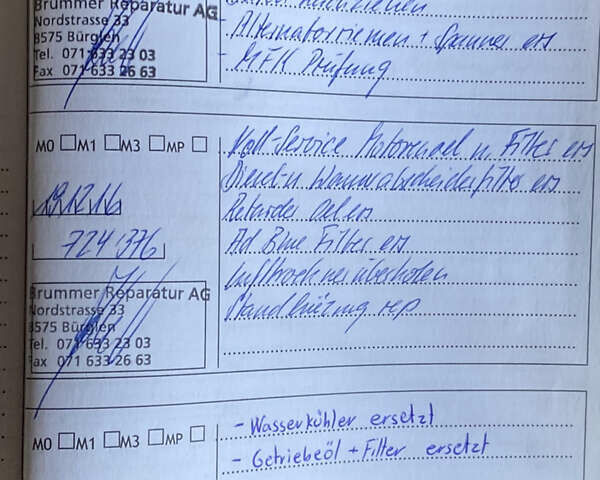 Brummer Reparatur AG
Nordstrasse 33
8575 Bürglen
Tel. 071 633 23 03
Fax 071 633 26 63
- Alternatorriemen + Spanner ers
- MFK Prüfung
M0 M1 M3 MP
19.12.16
724 376
Brummer Reparatur AG
Nordstrasse 33
8575 Bürglen
Tel. 071 633 23 03
Fax 071 633 26 63
Voll-Service Motorenoel u. Filter ers
Diesel- u. Wasserabscheiderfilter ers
Retarder Oel ers
Ad Blue Filter ers
Lufttrockner überholen
Standheizung rep
M0 M1 M3 MP
- Wasserkühler ersetzt
- Getriebeöl + Filter ersetzt